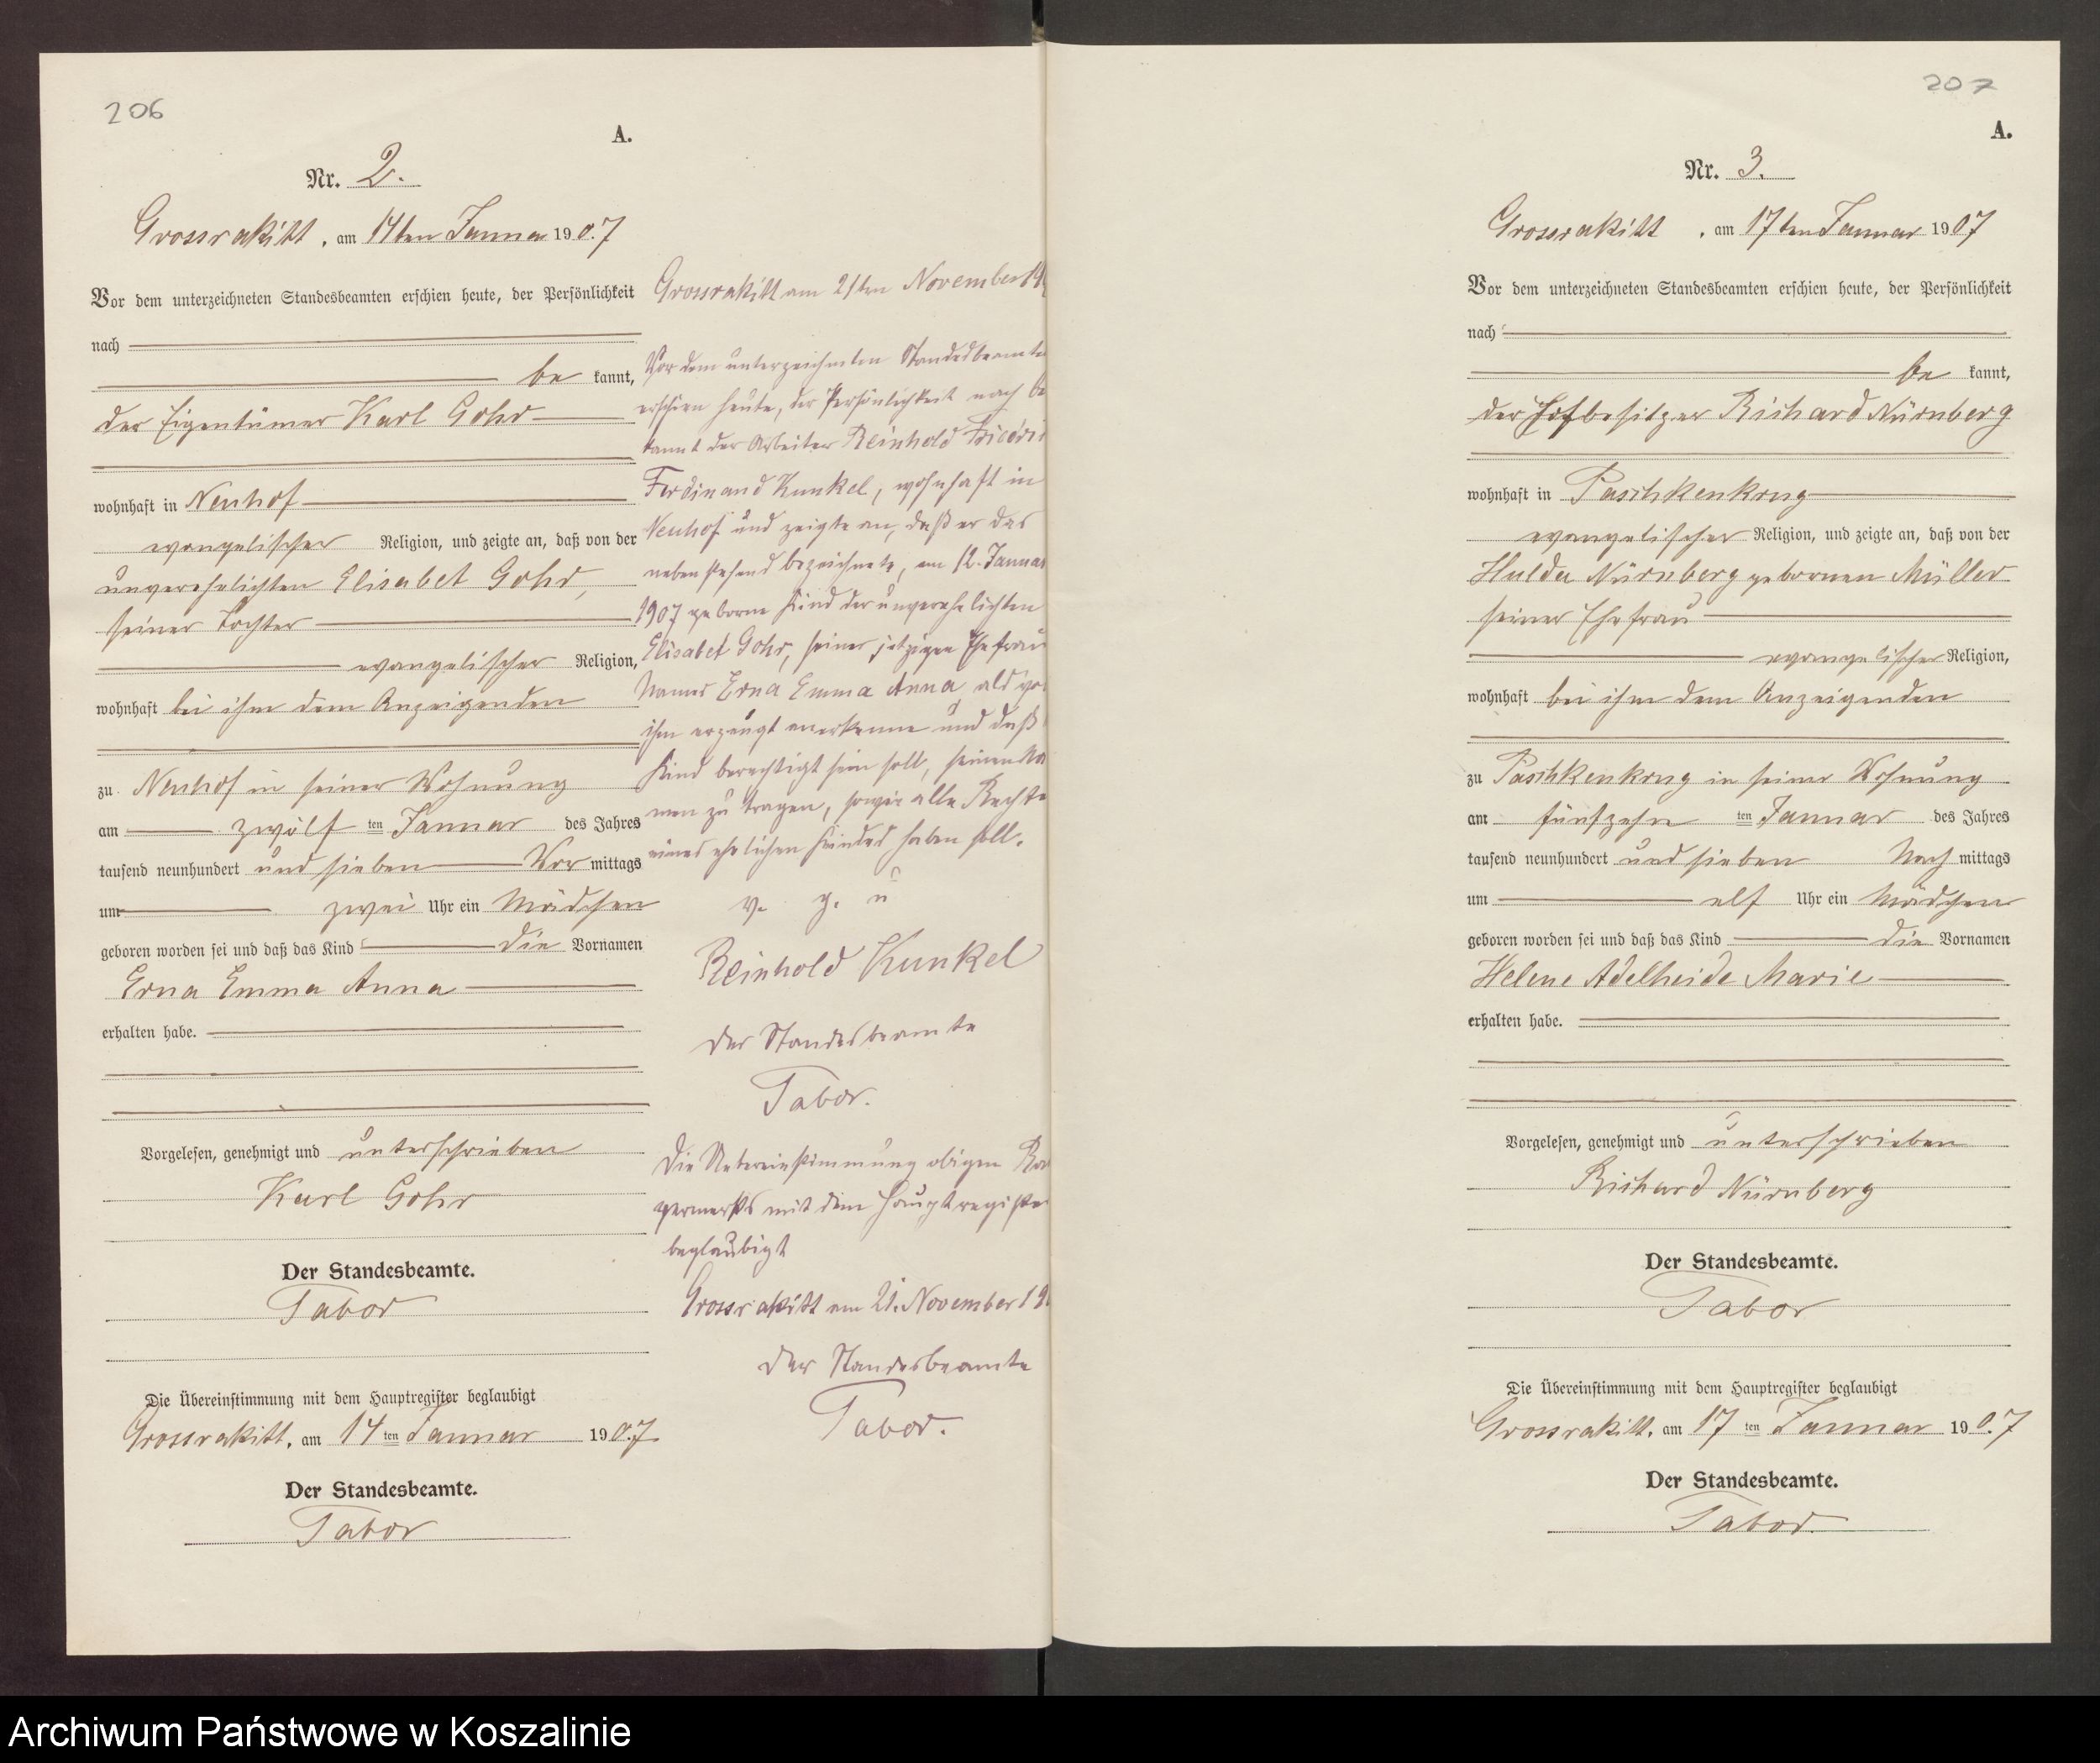 206
A.
Nr. 2.
Grossrakitt, am 14ten Januar 1907
Vor dem unterzeichneten Standesbeamten erschien heute, der Persönlichkeit
nach
be kannt,
der Eigentümer Karl Gohr
wohnhaft in Neuhof
evangelischer Religion, und zeigte an, daß von der
unverehelichten Elisabet Gohr,
seiner Tochter
evangelischer Religion,
wohnhaft bei ihm dem Anzeigenden
zu Neuhof in seiner Wohnung
am zwölf ten Januar des Jahres
tausend neunhundert und sieben Vor mittags
um zwei Uhr ein Mädchen
geboren worden sei und daß das Kind die Vornamen
Erna Emma Anna
erhalten habe.
Vorgelesen, genehmigt und unterschrieben
Karl Gohr
Der Standesbeamte.
Tabor
Die Übereinstimmung mit dem Hauptregister beglaubigt
Grossrakitt, am 14 ten Januar 190.7
Der Standesbeamte.
Tabor
Grossrakitt am 21ten November 19
Vor dem unterzeichneten Standesbeamte
erschien heute, der Persönlichkeit nach be
kannt der Arbeiter Reinhold Friedri
Ferdinand Kunkel, wohnhaft in
Neuhof und zeigte an, daß er das
nebenstehend bezeichnete, am 12. Januar
1907 geborne Kind der unverehelichten
Elisabet Gohr, seiner jetzigen Ehefrau
Namens Erna Emma Anna als vo
ihm erzeugt anerkenne und daß
Kind berechtigt sein soll, seinen Na
men zu tragen, sowie alle Rechte
eines ehelichen Kindes haben soll.
v. g. u
Reinhold Kunkel
Der Standesbeamte
Tabor.
Die Uebereinstimmung obigen Ra
vermerks mit dem Hauptregister
beglaubigt
Grossrakitt am 21. November 19
Der Standesbeamte
Tabor.
207
A.
Nr. 3.
Grossrakitt, am 17ten Januar 1907
Vor dem unterzeichneten Standesbeamten erschien heute, der Persönlichkeit
nach
be kannt,
der Hofbesitzer Richard Nürnberg
wohnhaft in Paschkenkrug
evangelischer Religion, und zeigte an, daß von der
Hulda Nürnberg gebornen Müller
seiner Ehefrau
evangelischer Religion,
wohnhaft bei ihm dem Anzeigenden
zu Paschkenkrug in seiner Wohnung
am fünfzehn ten Januar des Jahres
tausend neunhundert und sieben Nach mittags
um elf Uhr ein Mädchen
geboren worden sei und daß das Kind die Vornamen
Helene Adelheide Marie
erhalten habe.
Vorgelesen, genehmigt und unterschrieben
Richard Nürnberg
Der Standesbeamte.
Tabor
Die Übereinstimmung mit dem Hauptregister beglaubigt
Grossrakitt, am 17 ten Januar 190.7
Der Standesbeamte.
Tabor.
Archiwum Państwowe w Koszalinie